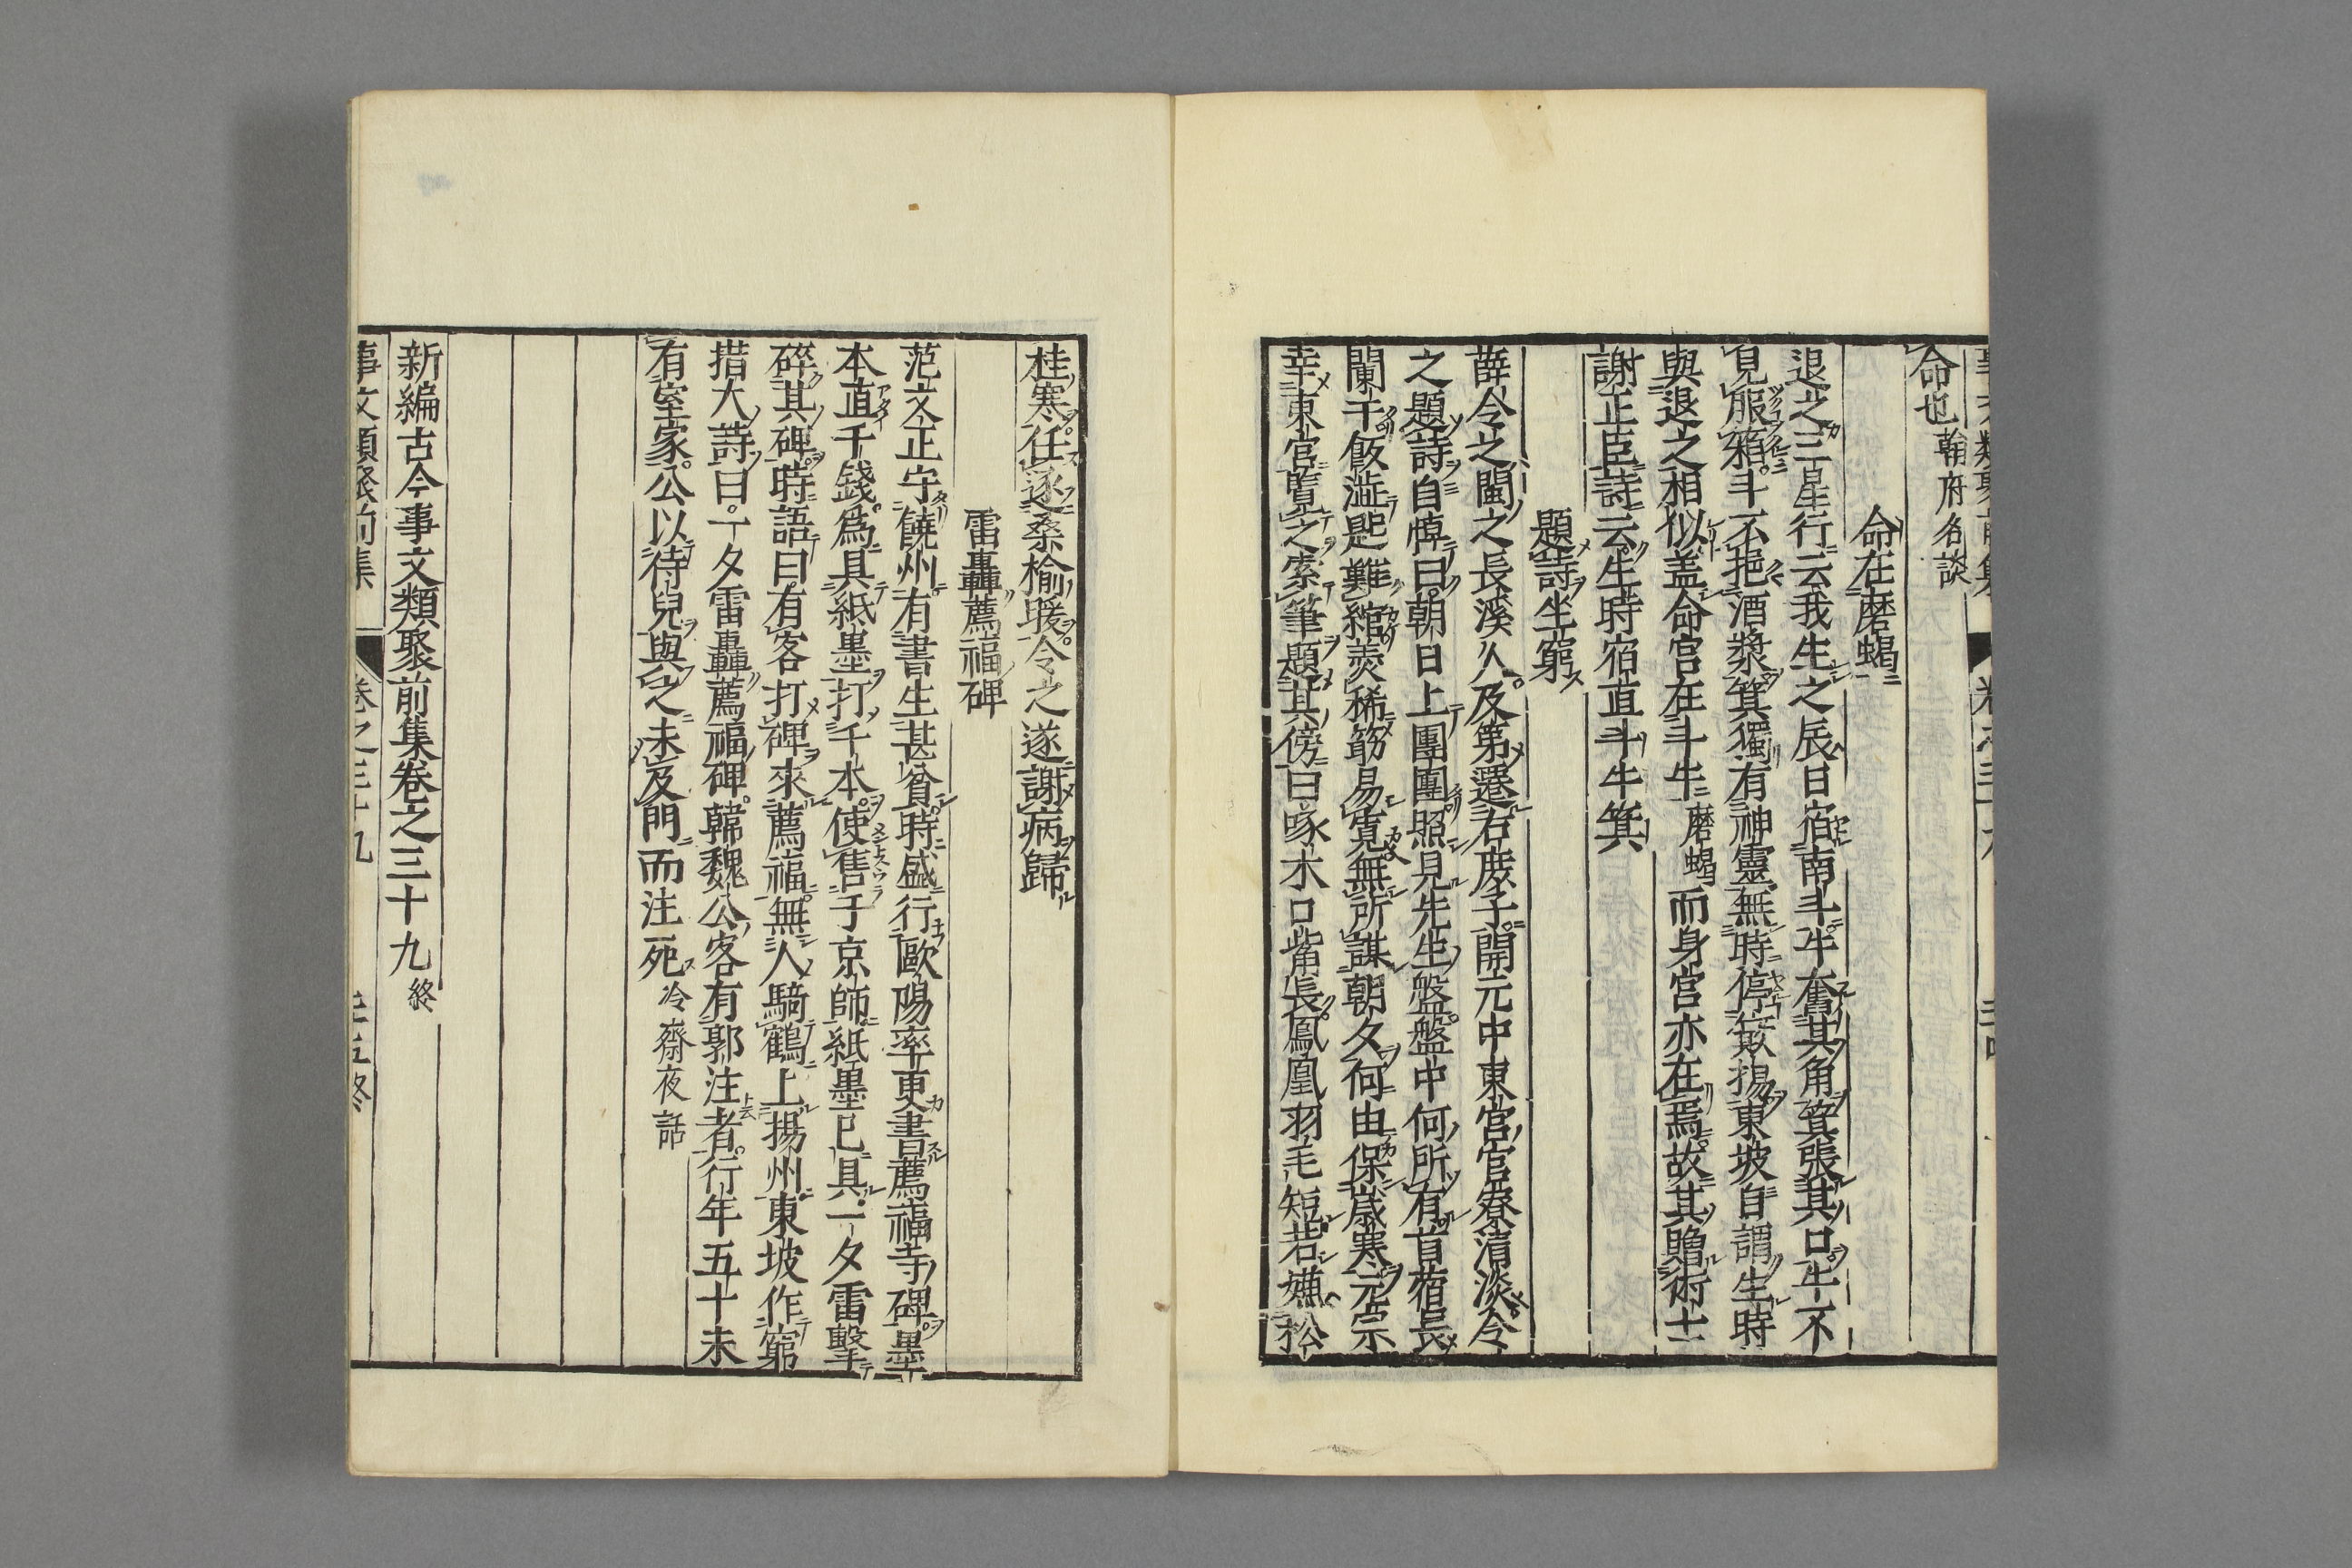 命也 翰府名談
命在磨蝎
退之三星行云我生之辰日宿南斗牛奮其角箕張其口牛不
見服箱斗不挹酒漿箕獨有神靈無時停簸揚東坡自謂生時
與退之相似盖命宮在斗牛磨蝎而身宮亦在焉故其贈術士
謝正臣詩云生時宿直斗牛箕
題詩坐窮
薛令之閩之長溪人及第遷右庶子開元中東宮官寮清淡令
之題詩自悼曰朝日上團團照見先生盤盤中何所有苜蓿長
闌干飯澁匙難綰羹稀筯易寛無所謀朝夕何由保歳寒元宗
幸東宮覽之索筆題其傍曰啄木口觜長鳳凰羽毛短若嫌松
桂寒任逐桑榆暖令之遂謝病歸
雷轟薦福碑
范文正守饒州有書生甚貧時盛行歐陽率更書薦福寺碑墨
本直千錢爲具紙墨打千本使售于京師紙墨已具一夕雷擊
碎其碑時語曰有客打碑來薦福無人騎鶴上揚州東坡作窮
措大詩曰一夕雷轟薦福碑韓魏公客有郭注者行年五十未
有室家公以待兒與之未及門而注死 冷齋夜話
新編古今事文類聚前集卷之三十九終
事文類聚前集 卷之三十九